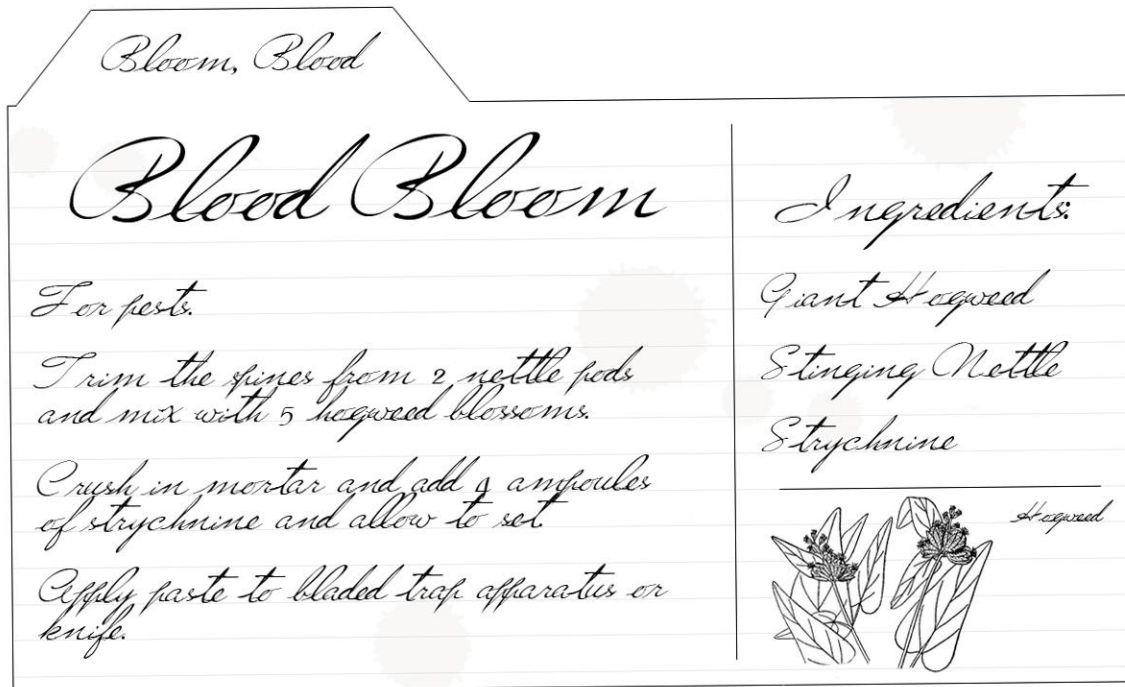 Bloom, Blood
Blood Bloom
For pests.
Trim the spines from 2 nettle pods
and mix with 5 hogweed blossoms.
Crush in mortar and add ampoules
of strychnine and allow to set.
Apply paste to bladed trap apparatus or
knife.
Ingredients:
Giant Hogweed
Stinging Nettle
Strychnine
Hogweed